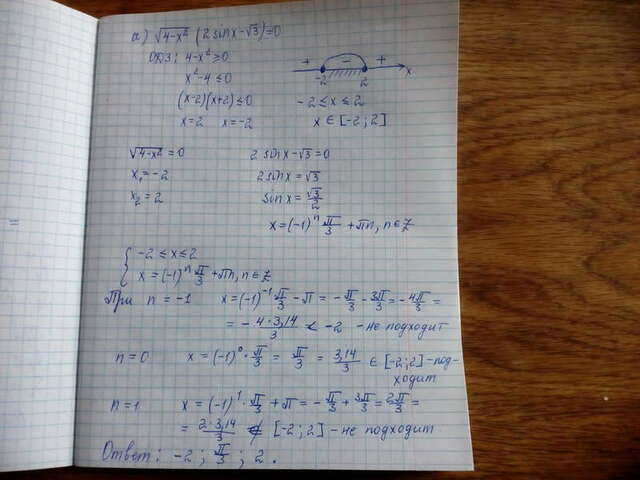 а) √(4-x²) (2sinx-√3)=0
ОДЗ: 4-x²≥0
x²-4≤0
(x-2)(x+2)≤0
x=2 x=-2
+ - +
-2 2 x
-2≤x≤2
x∈[-2;2]
√(4-x²)=0
x₁=-2
x₂=2
2sinx-√3=0
2sinx=√3
sinx=√3/2
x=(-1)ⁿ π/3 +πn, n∈Z
{ -2≤x≤2
x=(-1)ⁿ π/3 +πn, n∈Z
При n=-1 x=(-1)⁻¹ π/3 - π = -π/3 - 3π/3 = -4π/3 =
= -4·3,14/3 < -2 - не подходит
n=0 x=(-1)⁰·π/3 = π/3 = 3,14/3 ∈ [-2;2] - под-
ходит
n=1 x=(-1)¹·π/3 + π = -π/3 + 3π/3 = 2π/3 =
= 2·3,14/3 ∉ [-2;2] - не подходит
Ответ: -2; π/3; 2.
=